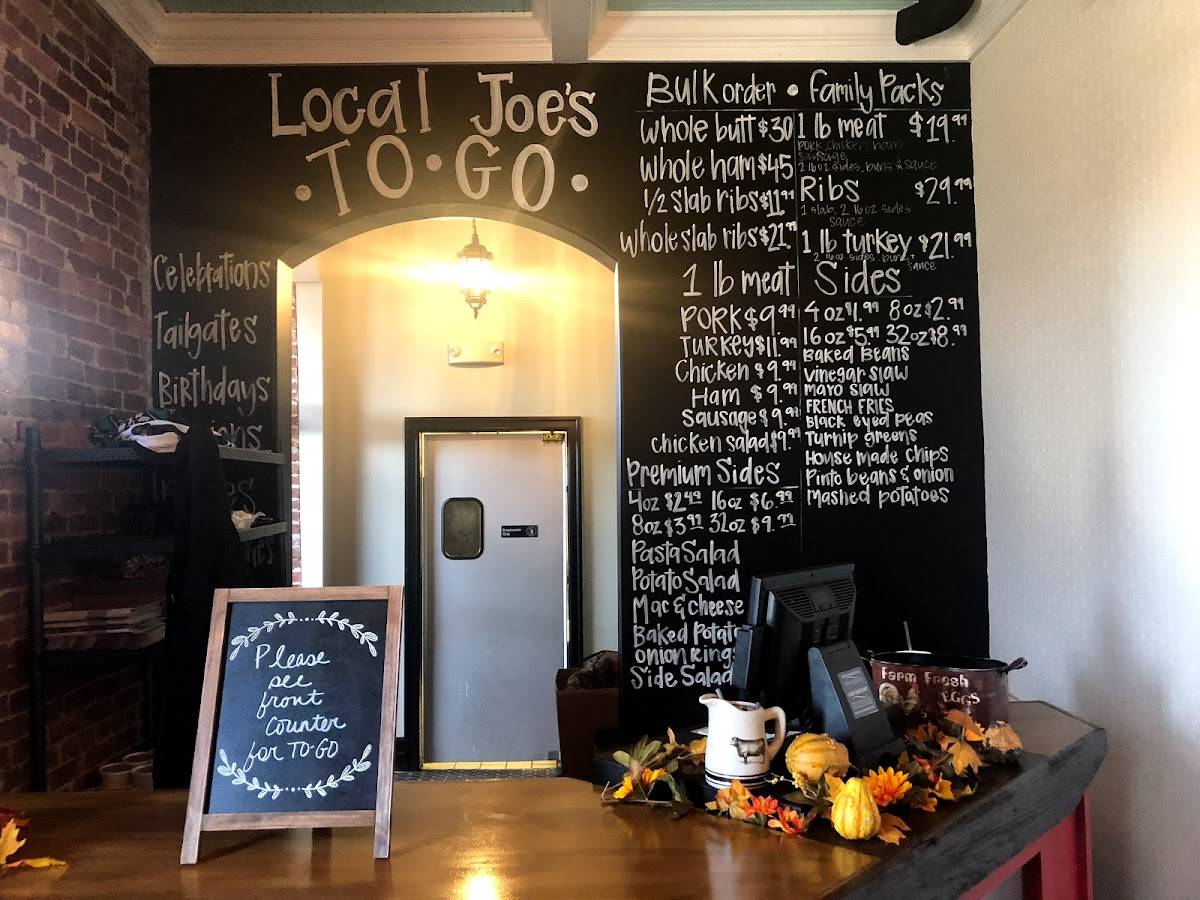 Local Joe's
• TO • GO •
Celebrations
Tailgates
Birthdays
Bulk order • Family Packs
whole butt $30
whole ham $45
1/2 slab ribs $11.99
whole slab ribs $21.99
1 lb meat
PORK $9.99
TURKEY $11.99
Chicken $9.99
Ham $9.99
Sausage $9.99
chicken salad $9.99
Premium Sides
4oz $2.49 16oz $6.99
8oz $3.99 32oz $9.99
Pasta Salad
Potato Salad
Mac & cheese
Baked Potato
onion Rings
Side Salad
1 lb meat $19.99
pork, chicken ham
sausage
2 16oz sides, buns & sauce
Ribs $29.99
1 slab, 2 16oz sides
sauce
1 lb turkey $21.99
2 16oz sides, buns +
sauce
Sides
4 oz $1.99 8oz $2.99
16 oz $5.99 32oz $8.99
Baked Beans
Vinegar Slaw
Mayo Slaw
FRENCH FRIES
Black eyed peas
Turnip greens
House made chips
Pinto beans & onion
Mashed potatoes
Please
see
front
Counter
for TO-GO
Farm Fresh
EGGS